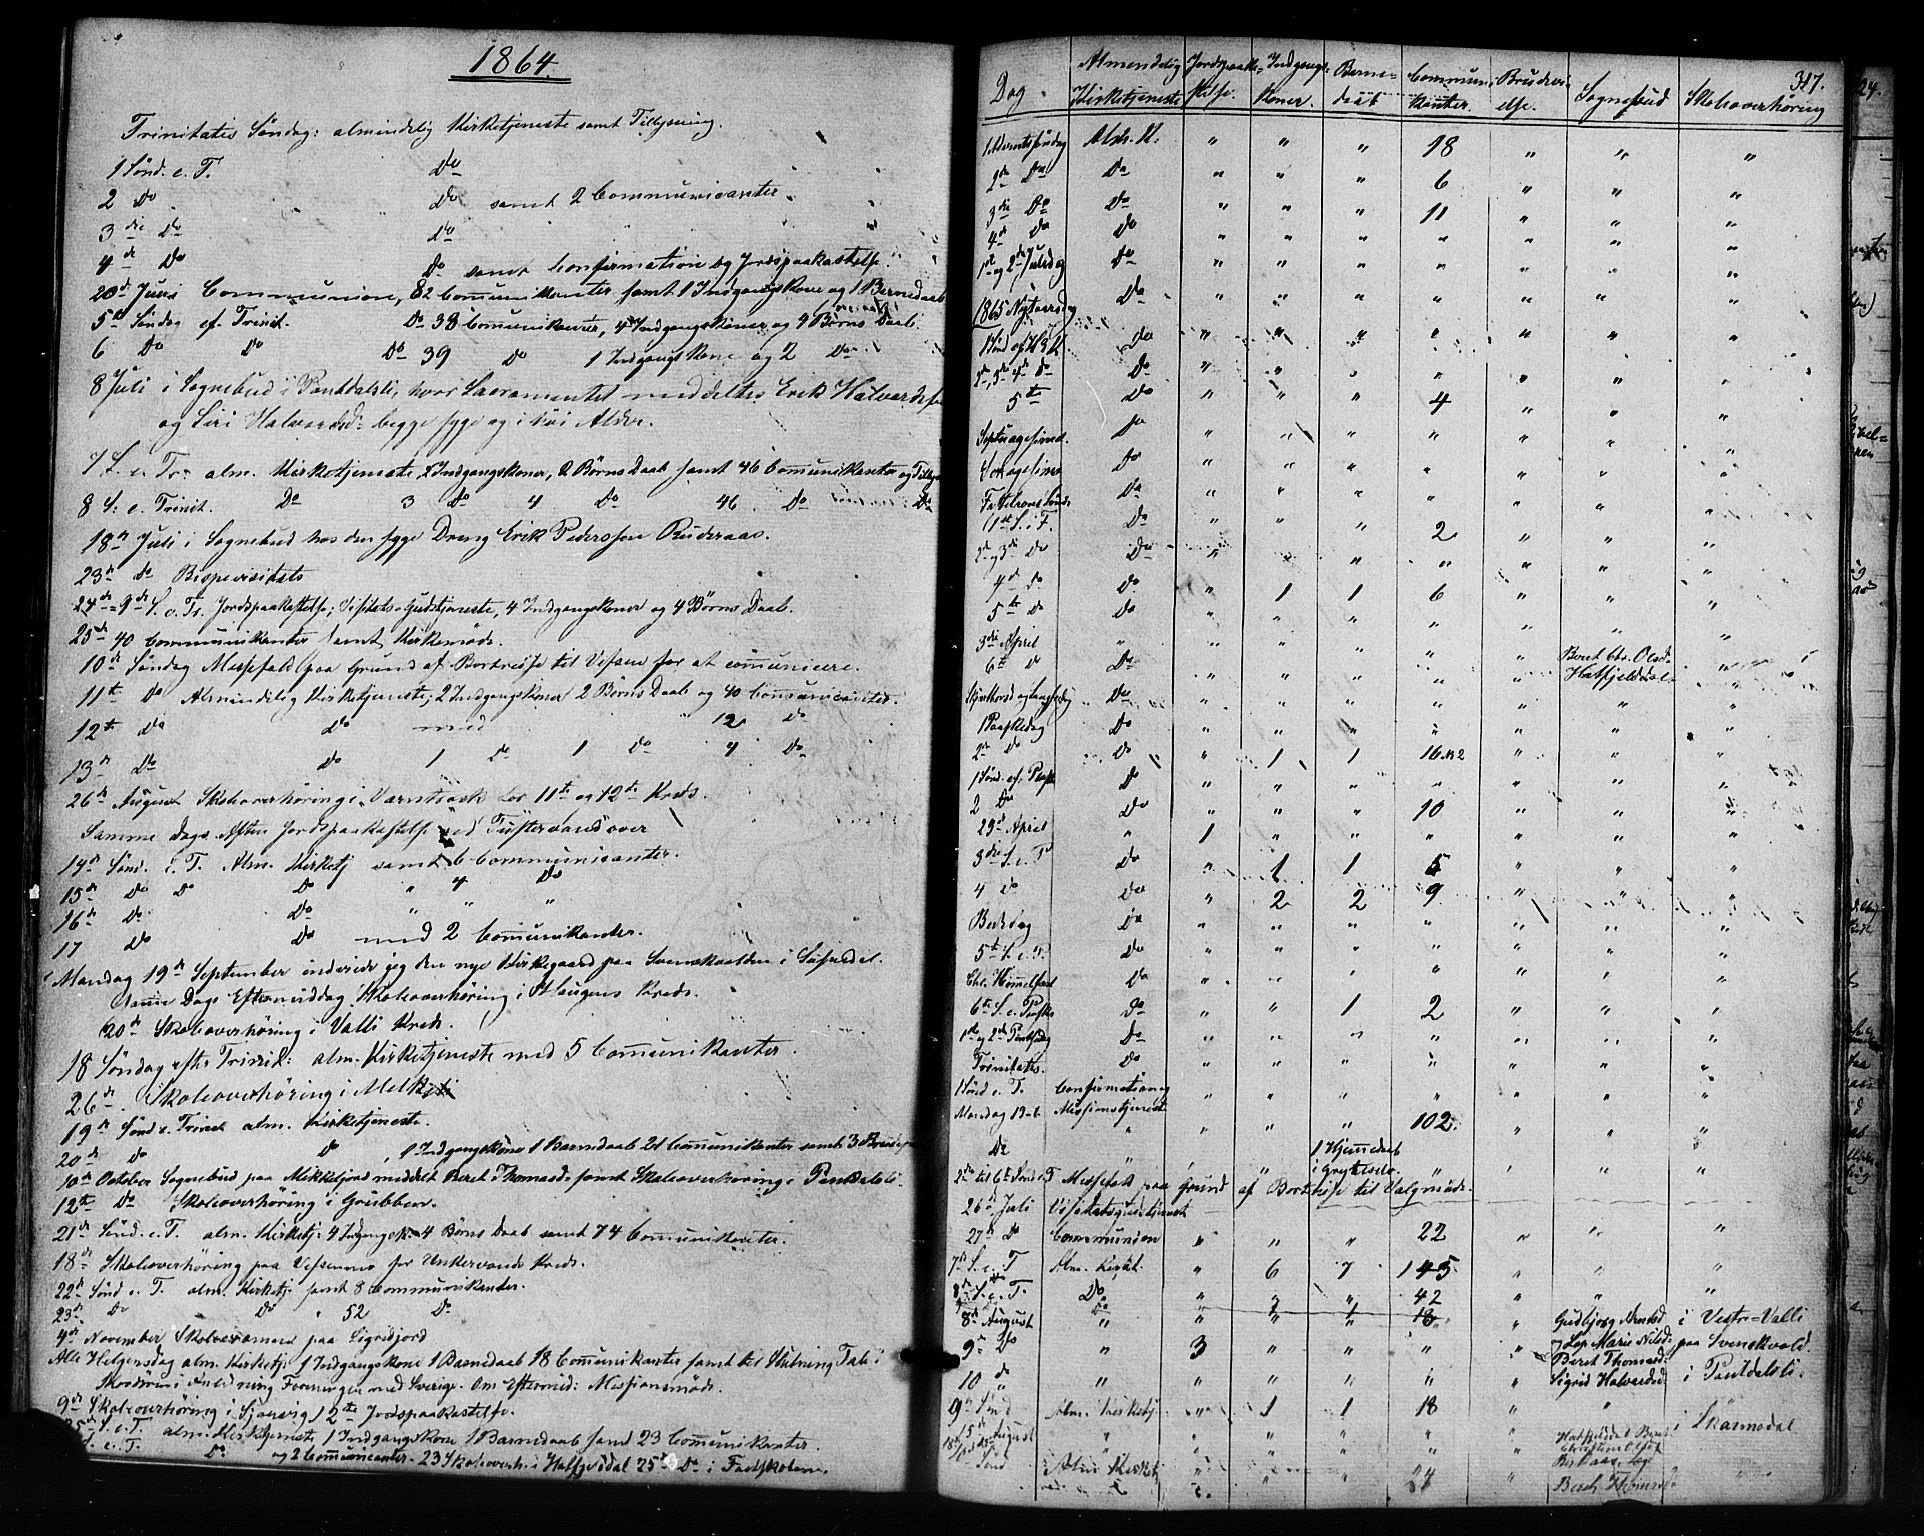 1864.
Trinitatis Søndag: almindelig Kirketjeneste samt Tillysning.
1 Sønd. e. T. Do
2 Do Do samt 2 Communicanter.
3die Do Do
4de Do Do samt Confirmation og Jordpaakastelse.
20de Juni Communion, 82 Comunikanter samt 1 Indgangskone og 1 Barnedaab
5te Søndag ef. Trinit. Do 38 Comunikanter, 4 Indgangskoner og 4 Børns Daab
6 Do Do Do 39 Do 1 Indgangskone og 2 Do
8 Juli i Sognebud i Pantdalsli, hvor Sacramentet meddeltes Erik Halvardsen
og Siri Halvardsd. begge syge og i høi Alder.
7 S. e. Tr. alm. Kirketjeneste, Indgangskoner, 2 Børns Daab samt 46 Comunikanter og
8 S. e. Trinit. Do 3 Do 4 Do 46 Do Do
18de Juli i Sognebud hos den syge Dreng Erik Pederssen Ruderaas.
23de Do Bispevisitats
24de 9de S. e. Tr. Jordpaakastelse; Visitats-Gudstjeneste, 4 Indgangskoner og 4 Børns Daab.
25de 40 Communikanter samt Kirkemøde.
10de Søndag Messefald paa Grund af Bortreise til Vefsen for at comunicere.
11te Do Almindelig Kirketjeneste; 2 Indgangskoner 2 Børns Daab og 40 Comunicanter.
12te Do Do med 12 Do
13de Do Do 1 Do 1 Do 4 Do
26de August Skoleoverhøring i Varntræsk for 11te og 12te Kreds.
Samme Dags Aften Jordpaakastelse ved Tustervand over
14de Sønd. e. T. Alm. Kirketj samt 6 Communicanter.
15de Do Do Do " 4 Do
16de Do Do " " "
17 Do Do med 2 Comunikanter.
Mandag 19de September indviede jeg den nye Kirkegaard paa Svenskvolden i Susendal.
Samme Dags Eftermiddag Skoleoverhøring i Haugens Kreds.
20de Skoleoverhøring i Valli Kreds.
18 Søndag efter Trinit: alm. Kirketjeneste med 5 Comunikanter.
26de Skoleoverhøring i
19de Sønd e. Trinit alm. Kirketjeneste.
20de Do Do, 1 Indgangskone 1 Barnedaab 21 Comunikanter samt 3
10de October Sognebud paa Mikkeljord meddelt Beret Thomasd. samt Skoleoverhøring i Pantdalsli.
12te Do Skoleoverhøring i Grubben.
21de Sønd. e. T. alm. Kirketj: 4 Indgangsk. 4 Børns Daab samt 74 Comunikanter.
18de Skoleoverhøring paa for Unkervands Kreds.
22de Sønd e. T. alm. Kirketj. samt 8 Communikanter.
23de Do Do " 52 Do
4de November Skoleexamen paa Sigridjord
Alle Helgensdag alm. Kirketj 1 Indgangskone 1 Barnedaab 18 Comunikanter samt til Slutning Tale i
Anledning Foreningen med Sverige. Om Eftermid: Missionsmøde.
9de Skoleoverhøring i 2te Jordpaakastelse.
25de S. e. T. alm. Kirketjeneste 1 Indgangskone 1 Barnedaab samt 23 Comunikanter.
S. e. T. Do og 2 Comunicanter. 23 Skoleoverh. i Hatfjelddal 25de Do i Fastskolen.
317.
Dag. Almendelig Kirketjeneste Jordpaakastelse. Indgangskoner. Barnedaab Communikanter. Brudevielse. Sognebud Skoleoverhøring
1 Adventssøndag Alm. K. " " " 18 " " "
2de Do Do " " " 6 " " "
3die Do Do " " " 11 " " "
4de Do Do " " " " " " "
1ste og 2den Juledag Do " " " " " " "
1865 Nytaarsdag Do " " " " " " "
1 Sønd. ef. H 3 K Do " " " " " " "
2de, 3die 4de Do Do " " " " " " "
5te Do " " " 4 " " "
Septuagesima. Do " " " " " " "
Sexagesima Do " " " " " " "
Fastelavns Sønd. Do " " " " " " "
1ste S. i F. Do " " " 2 " " "
2de og 3die Do Do " " " " " " "
4de Do Do " 1 1 6 " " "
5te Do Do " " " " " " "
3die April " " " " " " Beret Chr. Olsd. "
6te Do Do " " " " " Hatfjelddal "
Skjærthorsd og Langfredag Do " " " " " " "
1 Paaskedag Do " " " " " " "
2den Do Do " 1 1 16 " " "
1 Sønd. ef. Paaske Do " " " " " " "
2 Do Do " " " 10 " " "
29de April " 1 " " " " " "
3die S. e. P Do " 1 1 5 " " "
4 Do Do " 2 2 9 " " "
Bededag Do " " " " " " "
5te S. e. P. Do " " " " " " "
Chr. Himmelfart Do " " " " " " "
6te S. e. Paaske Do " " 1 2 " " "
1ste og 2den Pintsedag Do " " " " " " "
Trinitatis. Do " " " " " " "
1 Sønd e. T. Confirmation og " " " " " " "
Mandag Missionstjeneste " " " 102. " " "
Do " " " 1 Hjemmedaab
2de til 6te Sønd. e. T Messefald paa Grund af Bortreise til Valgmøde.
26de Juli Visitatsgudstjenest
27de Do Communion " " " 22 " " "
7de S. e. T Alm. Kirket. " 6 7 145 " " "
8de S. e. T. Do " " " 42 " " "
8de August " " " " " " Gudbjørg Arntsd i Vestre-Valli
9de Do " 3 " " " " og Lap. Marie Nilsd. paa Svenskvold.
10 Do " " " " " " Beret Thomasd. Sigrid Halvardsd i Pantdalsli.
9de Sønd Alm. Kirketj " 1 1 18 " " "
15de August " " " " " Hatfjelddal i Skarmodal
10 Sønd Alm Kirketj " " " 24 "